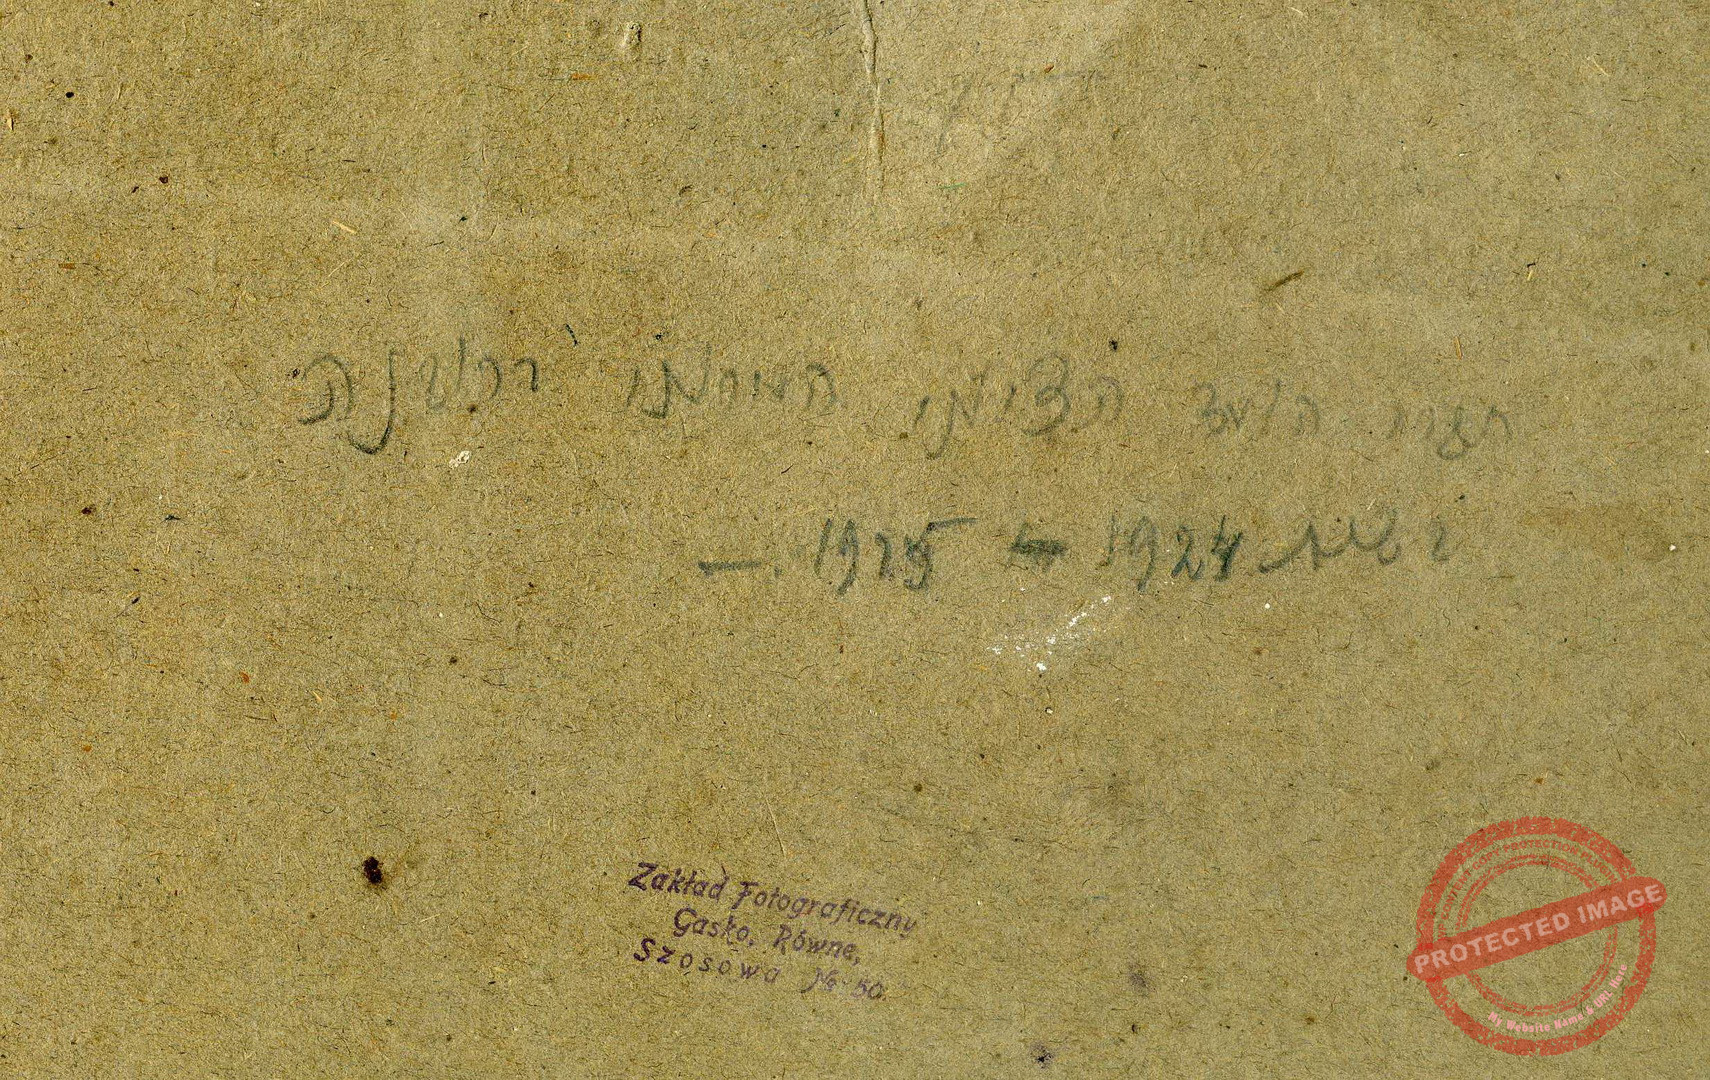 חברי הועד הציוני העירוני ברובנה
בשנות 1924 – 1925. —
Zakład Fotograficzny
Gasko, Równe,
Szosowa № 50
PROTECTED IMAGE
My Website Name & URL Here